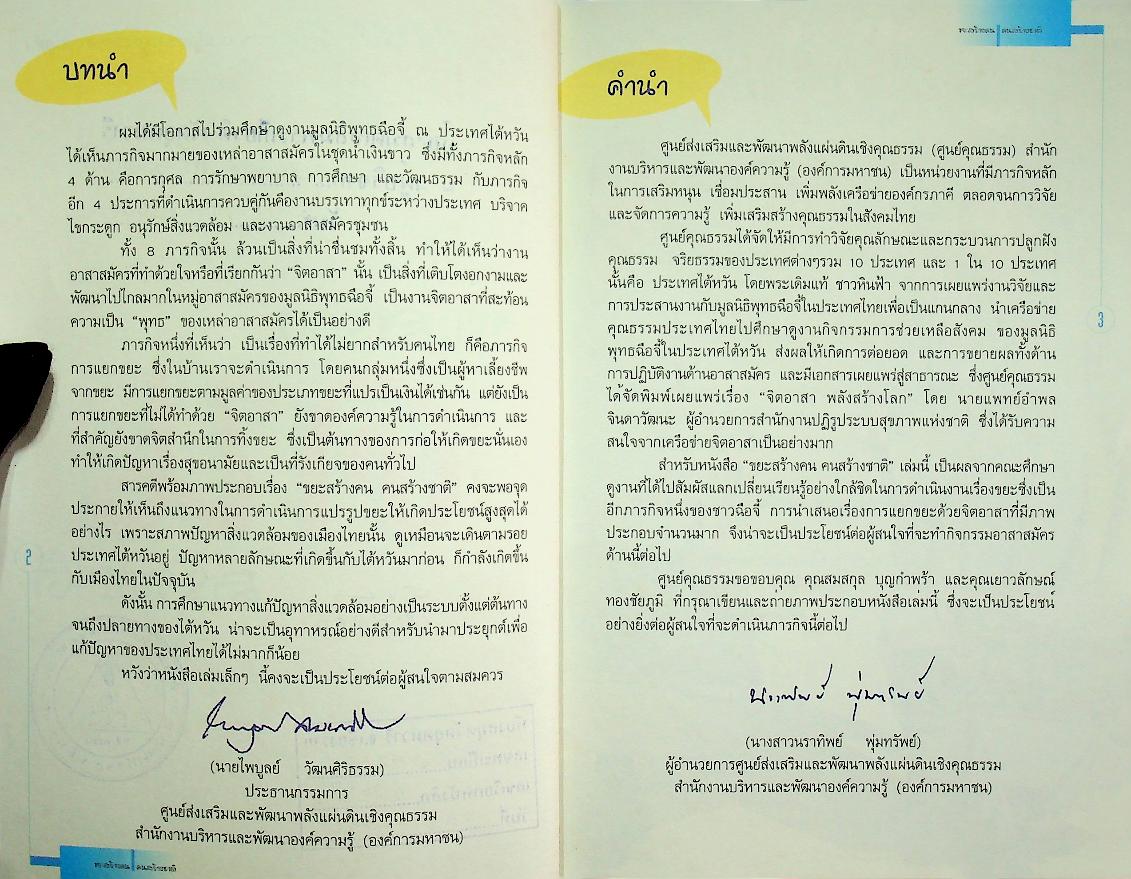 บทนำ
ผมได้มีโอกาสไปร่วมศึกษาดูงานมูลนิธิพุทธฉือจี้ ณ ประเทศไต้หวัน
ได้เห็นภารกิจมากมายของเหล่าอาสาสมัครในชุดน้ำเงินขาว ซึ่งมีทั้งภารกิจหลัก
4 ด้าน คือการกุศล การรักษาพยาบาล การศึกษา และวัฒนธรรม กับภารกิจ
อีก 4 ประการที่ดำเนินการควบคู่กันคืองานบรรเทาทุกข์ระหว่างประเทศ บริจาค
ไขกระดูก อนุรักษ์สิ่งแวดล้อม และงานอาสาสมัครชุมชน
ทั้ง 8 ภารกิจนั้น ล้วนเป็นสิ่งที่น่าชื่นชมทั้งสิ้น ทำให้ได้เห็นว่างาน
อาสาสมัครที่ทำด้วยใจหรือที่เรียกกันว่า “จิตอาสา” นั้น เป็นสิ่งที่เติบโตงอกงามและ
พัฒนาไปไกลมากในหมู่อาสาสมัครของมูลนิธิพุทธฉือจี้ เป็นงานจิตอาสาที่สะท้อน
ความเป็น “พุทธ” ของเหล่าอาสาสมัครได้เป็นอย่างดี
ภารกิจหนึ่งที่เห็นว่า เป็นเรื่องที่ทำได้ไม่ยากสำหรับคนไทย ก็คือภารกิจ
การแยกขยะ ซึ่งในบ้านเราจะดำเนินการ โดยคนกลุ่มหนึ่งซึ่งเป็นผู้หาเลี้ยงชีพ
จากขยะ มีการแยกขยะตามมูลค่าของประเภทขยะที่แปรเป็นเงินได้เช่นกัน แต่ยังเป็น
การแยกขยะที่ไม่ได้ทำด้วย “จิตอาสา” ยังขาดองค์ความรู้ในการดำเนินการ และ
ที่สำคัญยังขาดจิตสำนึกในการทิ้งขยะ ซึ่งเป็นต้นทางของการก่อให้เกิดขยะนั่นเอง
ทำให้เกิดปัญหาเรื่องสุขอนามัยและเป็นที่รังเกียจของคนทั่วไป
สารคดีพร้อมภาพประกอบเรื่อง “ขยะสร้างคน คนสร้างชาติ” คงจะพอจุด
ประกายให้เห็นถึงแนวทางในการดำเนินการแปรรูปขยะให้เกิดประโยชน์สูงสุดได้
อย่างไร เพราะสภาพปัญหาสิ่งแวดล้อมของเมืองไทยนั้น ดูเหมือนจะเดินตามรอย
ประเทศไต้หวันอยู่ ปัญหาหลายลักษณะที่เกิดขึ้นกับไต้หวันมาก่อน ก็กำลังเกิดขึ้น
กับเมืองไทยในปัจจุบัน
ดังนั้น การศึกษาแนวทางแก้ปัญหาสิ่งแวดล้อมอย่างเป็นระบบตั้งแต่ต้นทาง
จนถึงปลายทางของไต้หวัน น่าจะเป็นอุทาหรณ์อย่างดีสำหรับนำมาประยุกต์เพื่อ
แก้ปัญหาของประเทศไทยได้ไม่มากก็น้อย
หวังว่าหนังสือเล่มเล็กๆ นี้คงจะเป็นประโยชน์ต่อผู้สนใจตามสมควร
(นายไพบูลย์ วัฒนศิริธรรม)
ประธานกรรมการ
ศูนย์ส่งเสริมและพัฒนาพลังแผ่นดินเชิงคุณธรรม
สำนักงานบริหารและพัฒนาองค์ความรู้ (องค์การมหาชน)
2
ขยะสร้างคน คนสร้างชาติ
ขยะสร้างคน คนสร้างชาติ
คำนำ
ศูนย์ส่งเสริมและพัฒนาพลังแผ่นดินเชิงคุณธรรม (ศูนย์คุณธรรม) สำนัก
งานบริหารและพัฒนาองค์ความรู้ (องค์การมหาชน) เป็นหน่วยงานที่มีภารกิจหลัก
ในการเสริมหนุน เชื่อมประสาน เพิ่มพลังเครือข่ายองค์กรภาคี ตลอดจนการวิจัย
และจัดการความรู้ เพิ่มเสริมสร้างคุณธรรมในสังคมไทย
ศูนย์คุณธรรมได้จัดให้มีการทำวิจัยคุณลักษณะและกระบวนการปลูกฝัง
คุณธรรม จริยธรรมของประเทศต่างๆรวม 10 ประเทศ และ 1 ใน 10 ประเทศ
นั้นคือ ประเทศไต้หวัน โดยพระเดิมแท้ ชาวหินฟ้า จากการเผยแพร่งานวิจัยและ
การประสานงานกับมูลนิธิพุทธฉือจี้ในประเทศไทยเพื่อเป็นแกนกลาง นำเครือข่าย
คุณธรรมประเทศไทยไปศึกษาดูงานกิจกรรมการช่วยเหลือสังคม ของมูลนิธิ
พุทธฉือจี้ในประเทศไต้หวัน ส่งผลให้เกิดการต่อยอด และการขยายผลทั้งด้าน
การปฏิบัติงานด้านอาสาสมัคร และมีเอกสารเผยแพร่สู่สาธารณะ ซึ่งศูนย์คุณธรรม
ได้จัดพิมพ์เผยแพร่เรื่อง “จิตอาสา พลังสร้างโลก” โดย นายแพทย์อำพล
จินดาวัฒนะ ผู้อำนวยการสำนักงานปฏิรูประบบสุขภาพแห่งชาติ ซึ่งได้รับความ
สนใจจากเครือข่ายจิตอาสาเป็นอย่างมาก
สำหรับหนังสือ “ขยะสร้างคน คนสร้างชาติ” เล่มนี้ เป็นผลจากคณะศึกษา
ดูงานที่ได้ไปสัมผัสแลกเปลี่ยนเรียนรู้อย่างใกล้ชิดในการดำเนินงานเรื่องขยะซึ่งเป็น
อีกภารกิจหนึ่งของชาวฉือจี้ การนำเสนอเรื่องการแยกขยะด้วยจิตอาสาที่มีภาพ
ประกอบจำนวนมาก จึงน่าจะเป็นประโยชน์ต่อผู้สนใจที่จะทำกิจกรรมอาสาสมัคร
ด้านนี้ต่อไป
ศูนย์คุณธรรมขอขอบคุณ คุณสมสกุล บุญกำพร้า และคุณเยาวลักษณ์
ทองชัยภูมิ ที่กรุณาเขียนและถ่ายภาพประกอบหนังสือเล่มนี้ ซึ่งจะเป็นประโยชน์
อย่างยิ่งต่อผู้สนใจที่จะดำเนินภารกิจนี้ต่อไป
นราทิพย์ พุ่มทรัพย์
(นางสาวนราทิพย์ พุ่มทรัพย์)
ผู้อำนวยการศูนย์ส่งเสริมและพัฒนาพลังแผ่นดินเชิงคุณธรรม
สำนักงานบริหารและพัฒนาองค์ความรู้ (องค์การมหาชน)
3